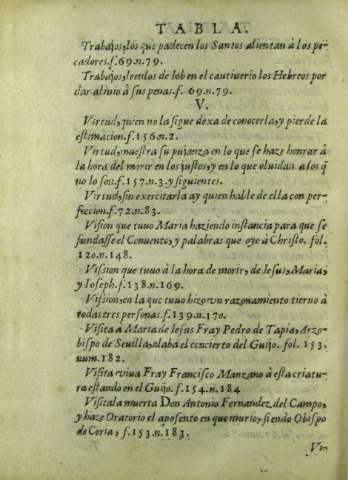 TABLA.
Trabajos, los que padecen los Santos alientan à los pe-
cadores. f. 69. n. 79.
Trabajos, leenlos de Iob en el cautiuerio los Hebreos por
dar aliuio à sus penas. f. 69. n. 79.
V.
Virtud, quien no la sigue dexa de conocerla, y pierde la
estimacion. f. 156. n. 2.
Virtud, muestra su pujanza en lo que se haze honrar à
la hora del morir en los justos, y en lo que oluidan a los q̃
no lo son. f. 157. n. 3. y siguientes.
Virtud, sin exercitarla ay quien hable de ella con per-
feccion. f. 72. n. 83.
Vision que tuuo Maria haziendo instancia para que se
fundasse el Conuento, y palabras que oye à Christo. fol.
120. n. 148.
Vission que tuuo à la hora de morir, de Iesus, Maria,
y Ioseph. f. 138. n. 169.
Vission, en la que tuuo hizo vn razonamiento tierno à
todas tres personas. f. 139. n. 170.
Visita a Maria de Iesus Fray Pedro de Tapia, Arzo-
bispo de Seuilla, alaba el concierto del Guijo. fol. 153.
num. 182.
Visita viua Fray Francisco Manzano à esta criatu-
ra estando en el Guijo. f. 154. n. 184
Visitala muerta Don Antonio Fernandez del Campo,
y haze Oratorio el aposento en que murio, siendo Obispo
de Coria, f. 153. n. 183.